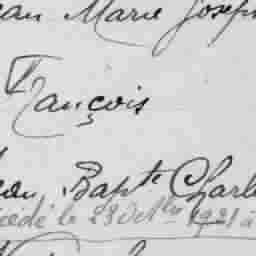 ean Marie Joseph
François
Jean, Bapte Charl
cédé le 28 Octbre 1921 à